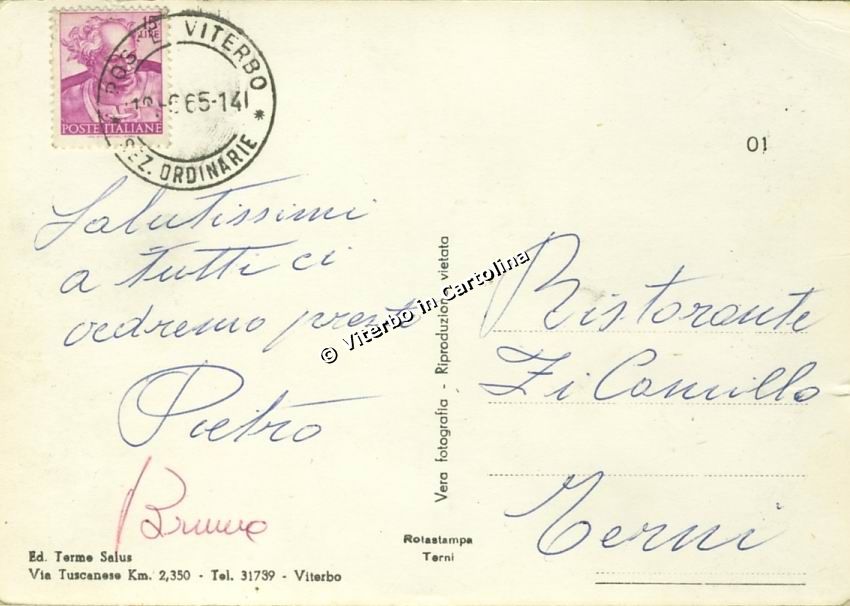 15
LIRE
POSTE ITALIANE
VITERBO
6 65-14
SEZ. ORDINARIE
01
Salutissimi
a tutti ci
vedremo presto
Pietro
Bruno
Ed. Terme Salus
Via Tuscanese Km. 2,350 - Tel. 31739 - Viterbo
Vera fotografia - Riproduzione vietata
© Viterbo in Cartolina
Rotastampa
Terni
Ristorante
Zi Camillo
Terni